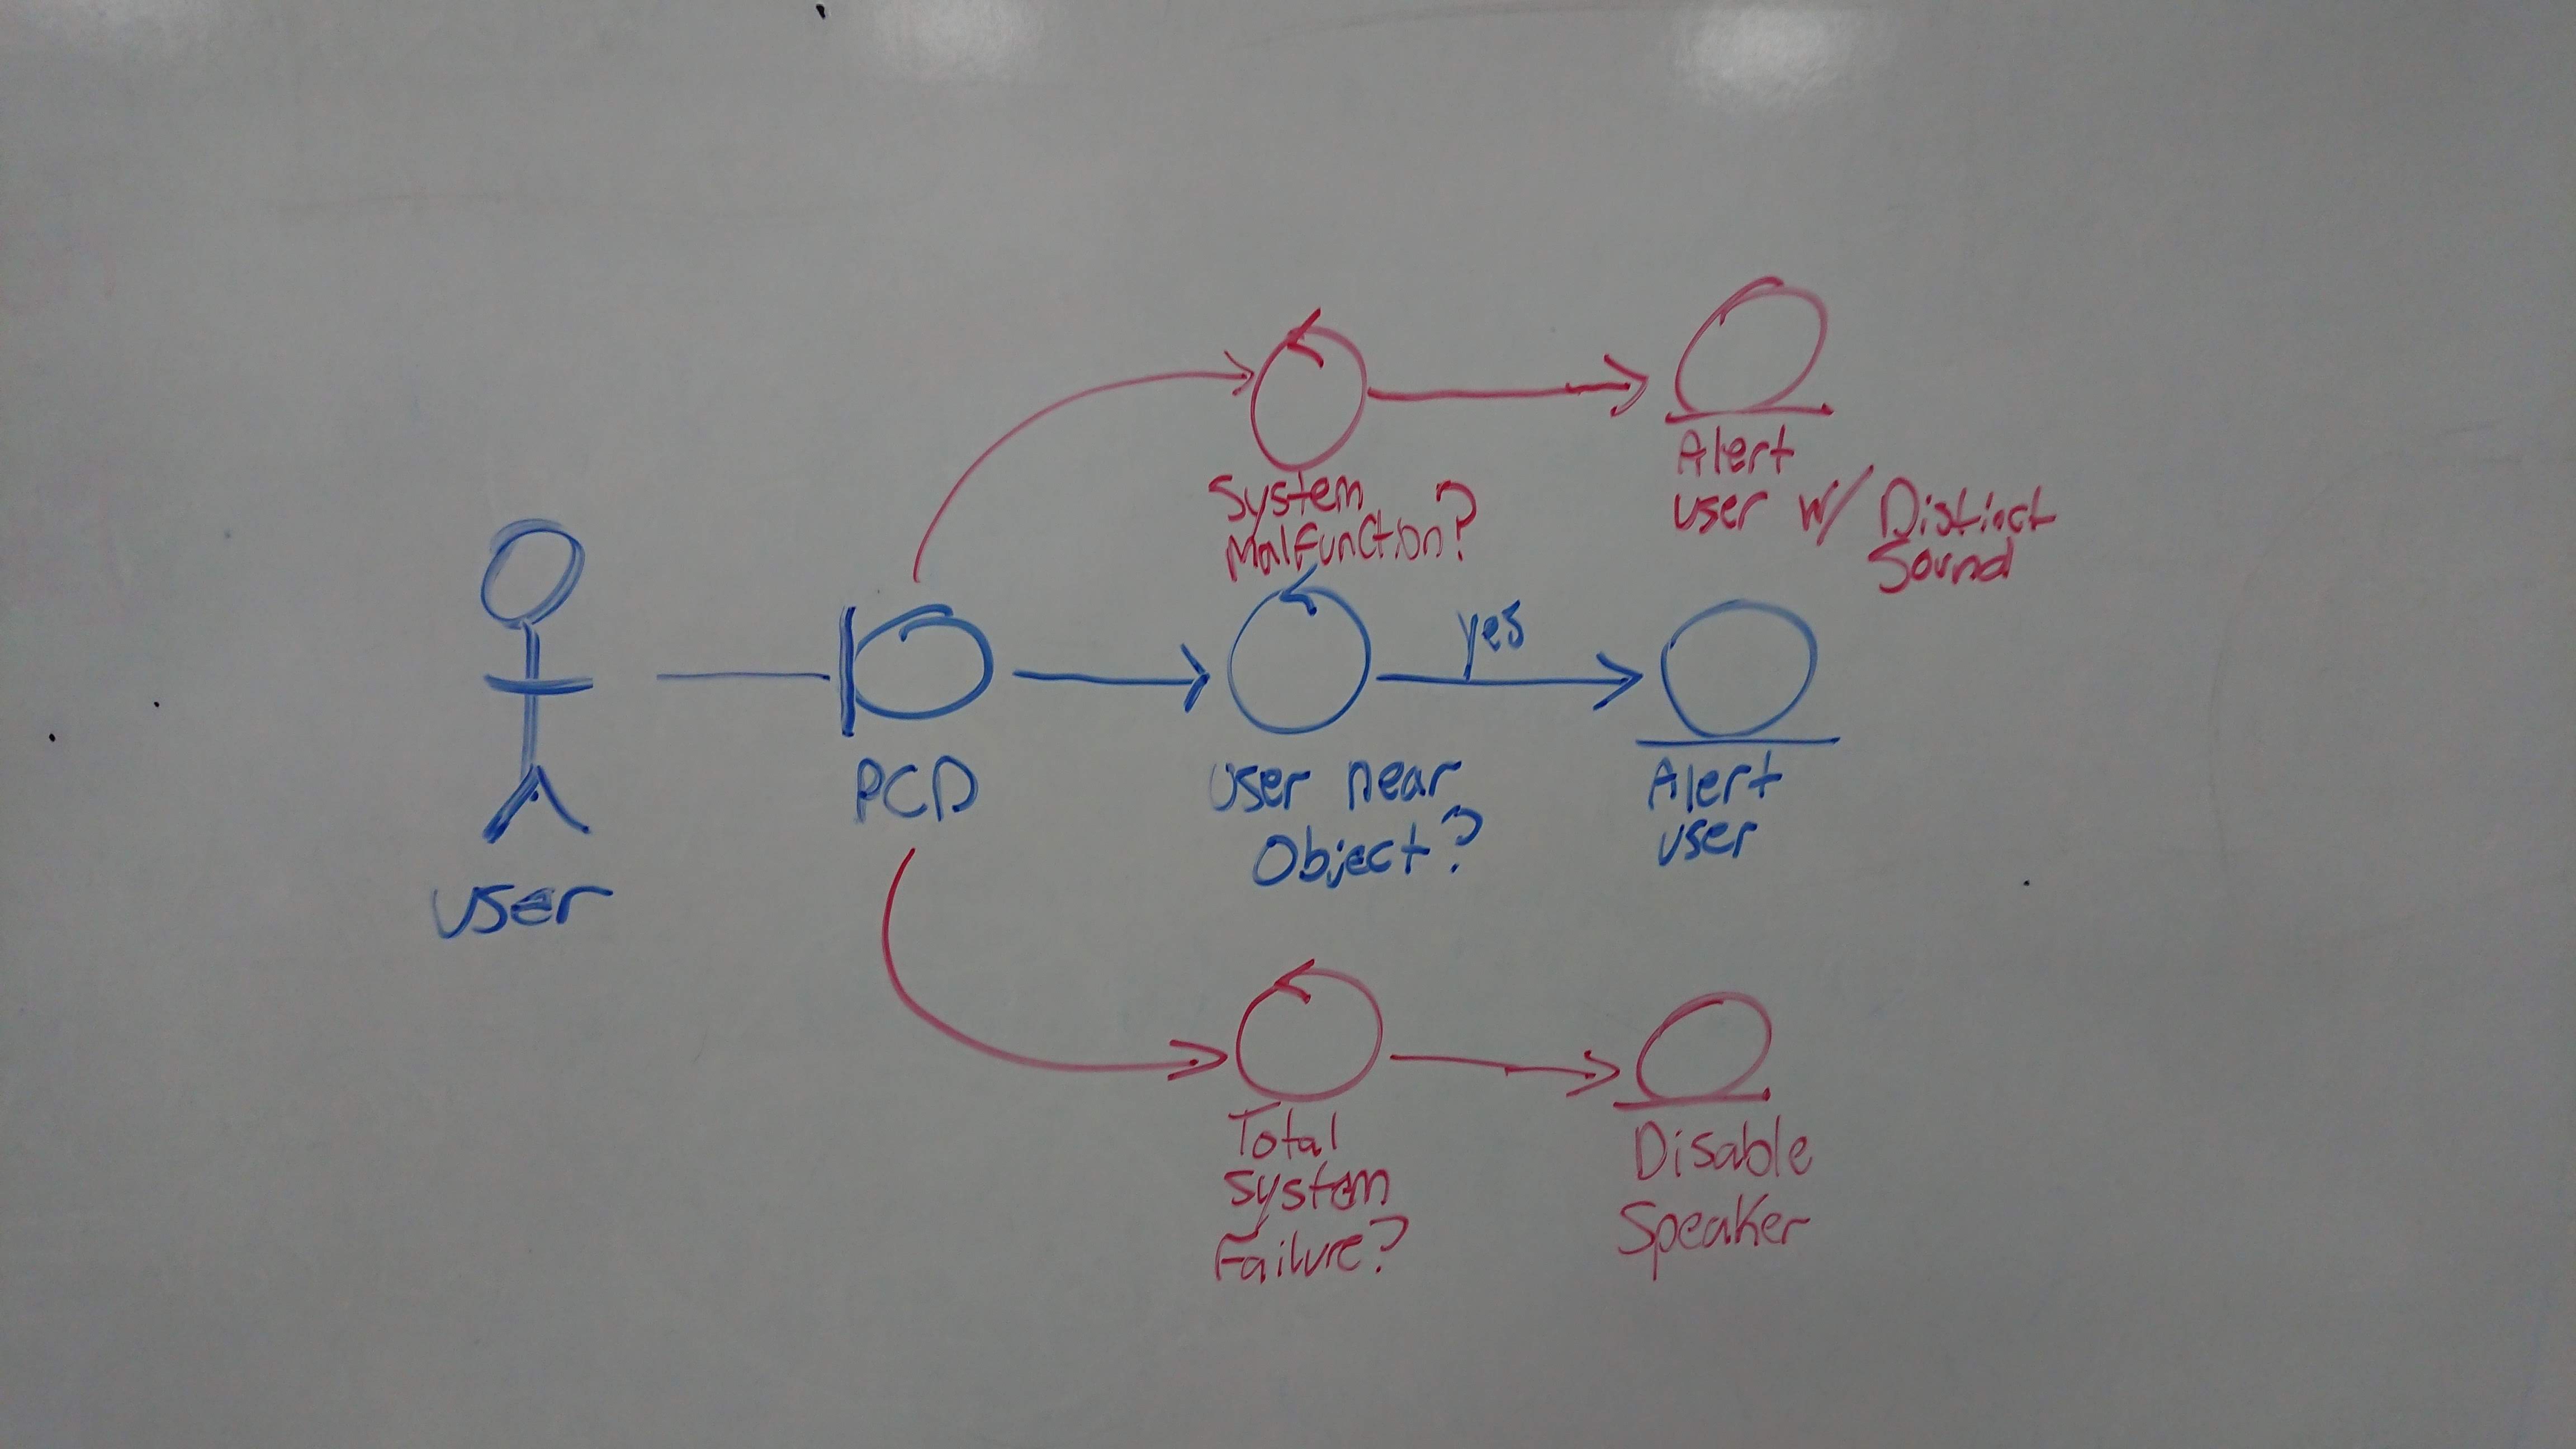 System
Malfunction?
Alert
user w/ Distinct
Sound
yes
user
PCD
User near
Object?
Alert
user
Total
System
Failure?
Disable
Speaker